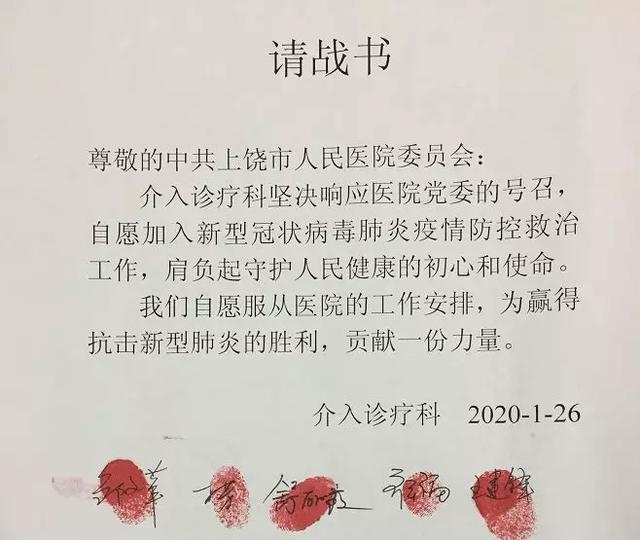 请战书
尊敬的中共上饶市人民医院委员会：
介入诊疗科坚决响应医院党委的号召，
自愿加入新型冠状病毒肺炎疫情防控救治
工作，肩负起守护人民健康的初心和使命。
我们自愿服从医院的工作安排，为赢得
抗击新型肺炎的胜利，贡献一份力量。
介入诊疗科 2020-1-26